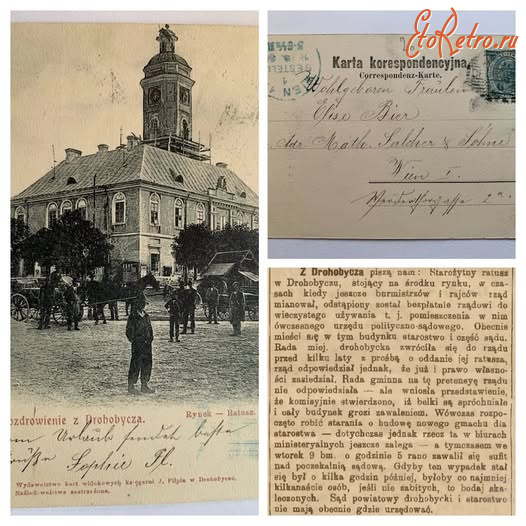 EtoRetro.ru
Karta korespondencyjna
Correspondenz-Karte.
WIEN 1
BESTELLT
Wohlgeboren Fräulein
Elise Bier
Adr Math. Salcher & Söhne
Wien I.
Pozdrowienie z Drohobycza.
Rynek — Ratusz.
Urlaub sendet beste
Grüße Sophie Pl.
Wydawnictwo kart widokowych księgarni J. Pilpla w Drohobyczu.
Naśladownictwo zastrzeżone.
Z Drohobycza piszą nam: Starożytny ratusz
w Drohobyczu, stojący na środku rynku, w cza-
sach kiedy jeszcze burmistrzów i rajców rząd
mianował, odstąpiony został bezpłatnie rządowi do
wieczystego używania t. j. pomieszczenia w nim
ówczesnego urzędu polityczno-sądowego. Obecnie
mieści się w tym budynku starostwo i część sądu.
Rada miej. drohobycka zwróciła się do rządu
przed kilku laty z prośbą o oddanie jej ratusza,
rząd odpowiedział jednak, że już i prawo własno-
ści zasiedział. Rada gminna na tę pretensyę rządu
nie odpowiedziała — ale wniosła przedstawienie,
że komisyjnie stwierdzono, iż belki są spróchniałe
i cały budynek grozi zawaleniem. Wówczas rozpo-
częto robić starania o budowę nowego gmachu dla
starostwa — dotychczas jednak rzecz ta w biurach
ministeryalnych jeszcze zalega — a tymczasem we
wtorek 9 bm. o godzinie 5 rano zawalił się sufit
nad poczekalnią sądową. Gdyby ten wypadek stał
się był o kilka godzin później, byłoby co najmniej
kilkanaście osób, jeśli nie zabitych, to bodaj ska-
leczonych. Sąd powiatowy drohobycki i starostwo
nie mają obecnie gdzie urzędować.